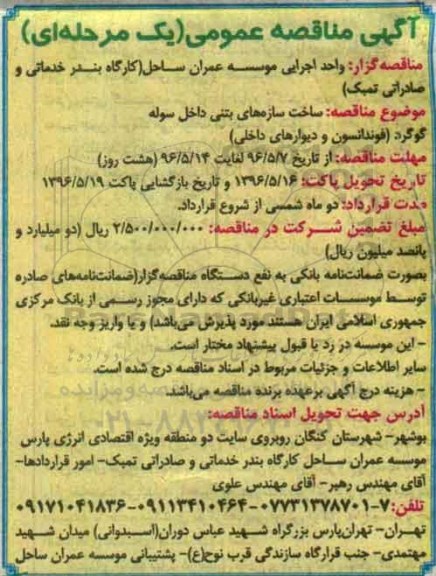 آگهی مناقصه عمومی(یک مرحله‌ای)
مناقصه گزار: واحد اجرایی موسسه عمران ساحل(کارگاه بندر خدماتی و
صادراتی تمبک)
موضوع مناقصه: ساخت سازه‌های بتنی داخل سوله
گوگرد (فوندانسون و دیوارهای داخلی)
مهلت مناقصه: از تاریخ ۹۶/۵/۷ لغایت ۹۶/۵/۱۴ (هشت روز)
تاریخ تحویل پاکت: ۱۳۹۶/۵/۱۶ و تاریخ بازگشایی پاکت ۱۳۹۶/۵/۱۹
مدت قرارداد: دو ماه شمسی از شروع قرارداد.
مبلغ تضمین شرکت در مناقصه: ۲/۵۰۰/۰۰۰/۰۰۰ ریال (دو میلیارد و
پانصد میلیون ریال)
بصورت ضمانت‌نامه بانکی به نفع دستگاه مناقصه‌گزار(ضمانت‌نامه‌های صادره
توسط موسسات اعتباری غیربانکی که دارای مجوز رسمی از بانک مرکزی
جمهوری اسلامی ایران هستند مورد پذیرش می‌باشد) و یا واریز وجه نقد.
- این موسسه در رد یا قبول پیشنهاد مختار است.
سایر اطلاعات و جزئیات مربوط در اسناد مناقصه درج شده است.
- هزینه درج آگهی برعهده برنده مناقصه می‌باشد.
آدرس جهت تحویل اسناد مناقصه:
بوشهر- شهرستان کنگان روبروی سایت دو منطقه ویژه اقتصادی انرژی پارس
موسسه عمران ساحل کارگاه بندر خدماتی و صادراتی تمبک- امور قراردادها-
آقای مهندس رهبر- آقای مهندس علوی
تلفن: ۷-۰۷۷۳۱۳۷۸۷۰۱-۰۹۱۱۳۴۱۰۴۶۴-۰۹۱۷۱۰۴۱۸۳۶
تهران- تهران‌پارس بزرگراه شهید عباس دوران(اسیدوانی) میدان شهید
مهتمدی- جنب قرارگاه سازندگی قرب نوح(ع)- پشتیبانی موسسه عمران ساحل